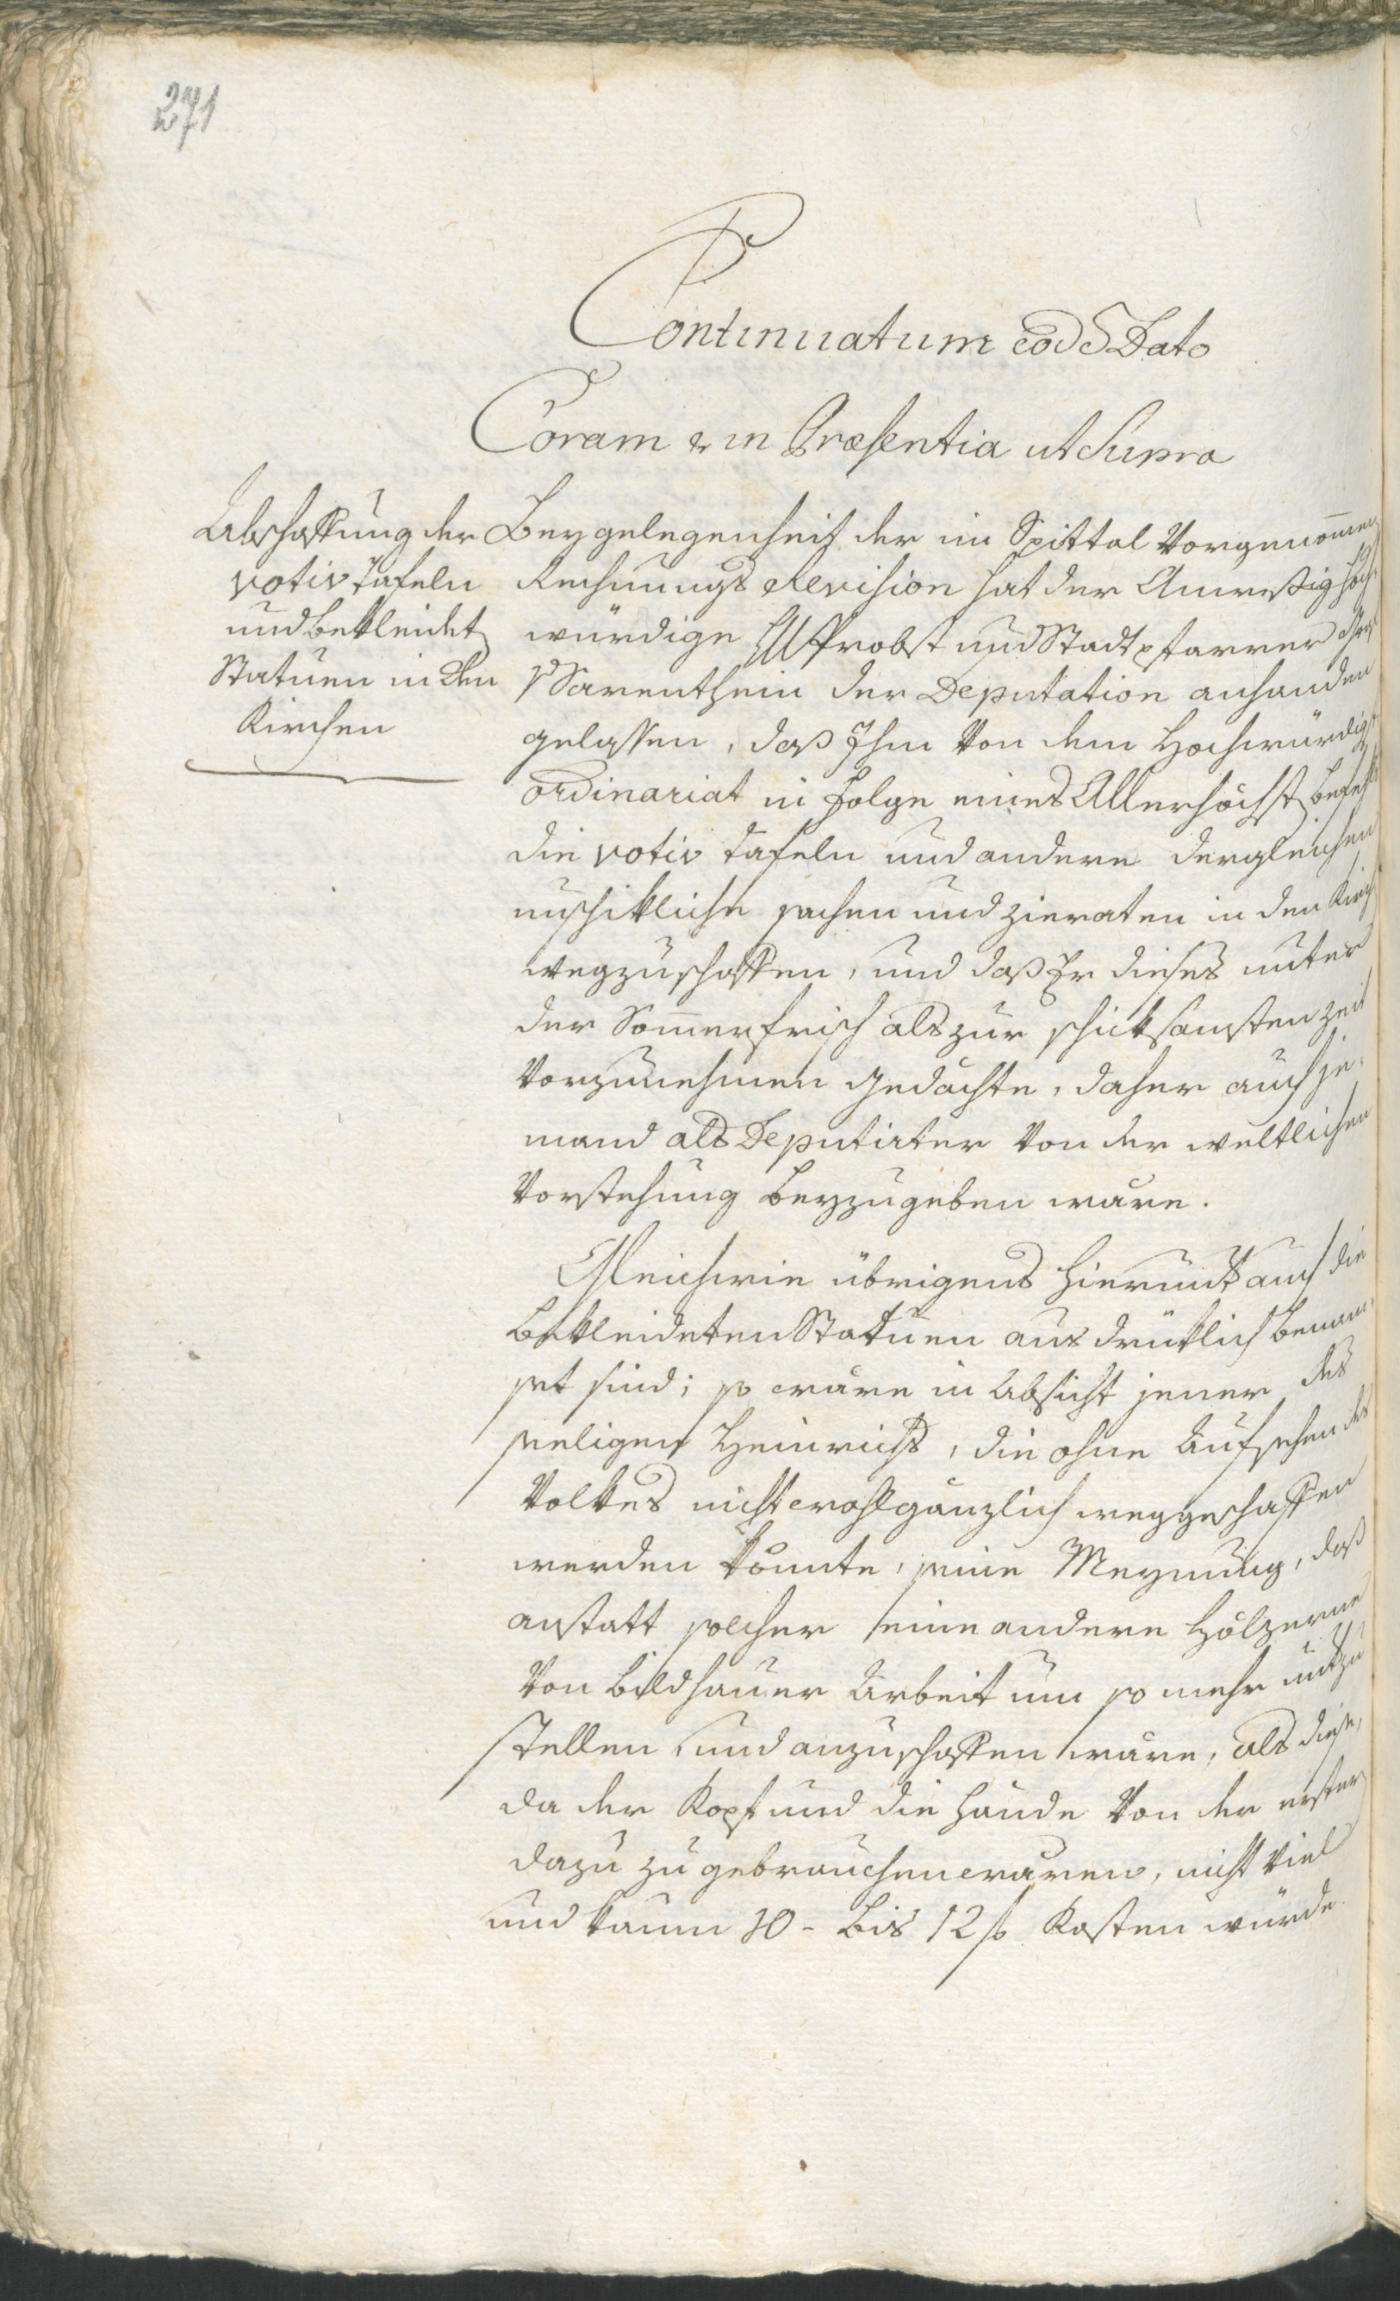 271
Continuatum eod Dato
Coram & in Præsentia ut Supra
Abschaffung der
votiv tafeln
und bekleidet
Statuen in den
Kirchen
Bey gelegenheit der im Spittal Vorgenommen
Rechnungs Revision hat der Anwesig hoch
würdige Probst und Stadtpfarrer
v Sarenthein der Deputation anhanden
gelassen, daß Ihm Von dem Hochwürdig
ordinariat in folge eines Allerhöchst Befehls
die votiv tafeln und andere dergleichen
unschikliche sachen und zieraten in den Kirch
wegzuschaffen, und daß Er dieses unter
der Sommerfrisch als zur schiksamsten zeit
Vorzunehmen gedachte, daher auch je-
mand als Deputirter Von der weltlichen
Vorstehung beyzugeben wäre.
Gleichwie übrigens hierunt auch die
bekleideten Statuen ausdrüklich benam-
set sind; so wäre in Absicht jener des
seeligen Heinrichs, die ohne Aufsehen des
Volkes nicht wohl gänzlich weggeschaffen
werden könnte, seine Meynung, daß
anstatt solcher eine andere Hölzerne
Von bildhauer Arbeit um so mehr
stellen und anzuschaffen wäre, als diese,
da der Kopf und die Hände Von der erster
dazu zu gebrauchen wären, nicht Viel
und kaum 10- bis 12 f Kosten würde.